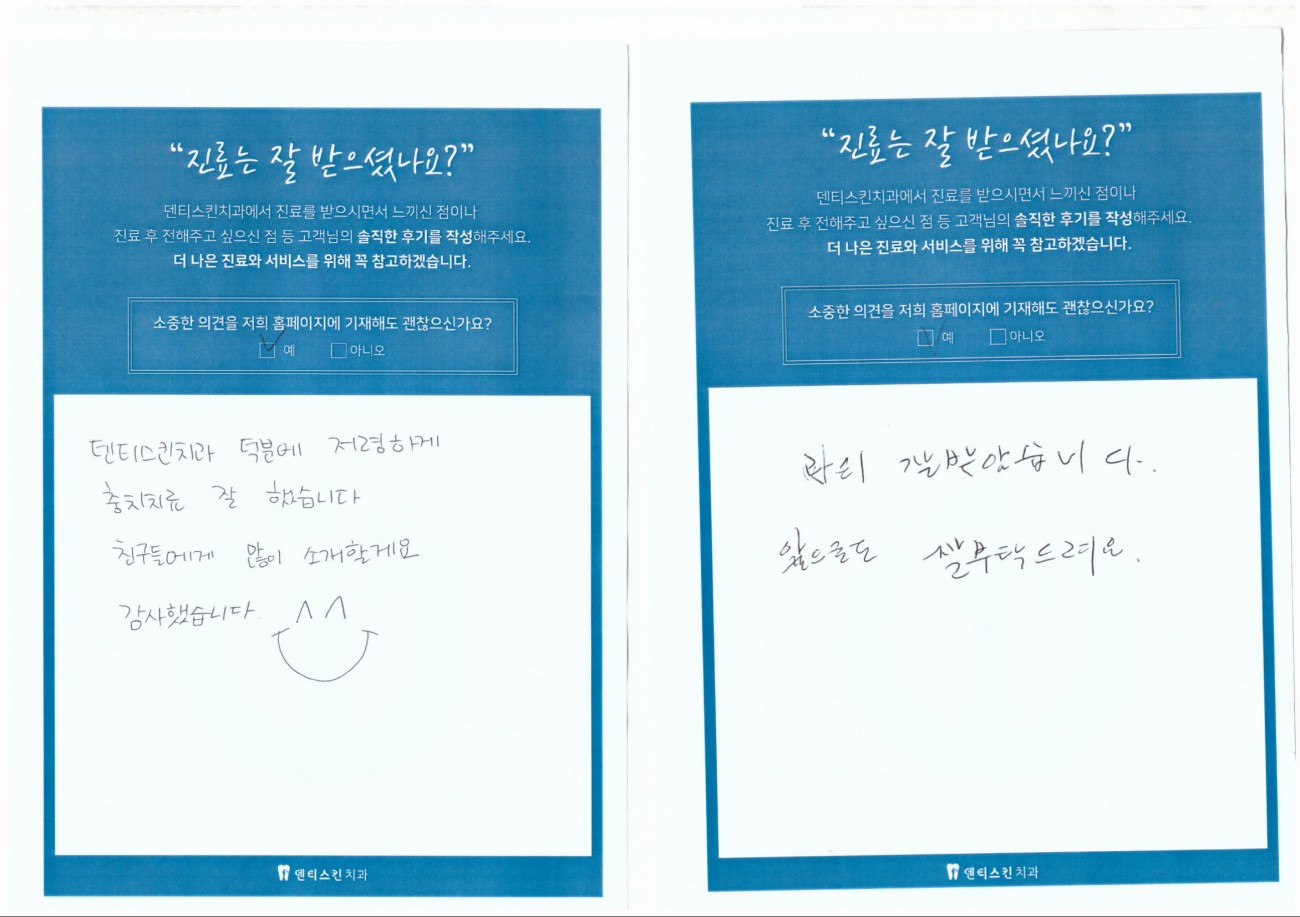 “진료는 잘 받으셨나요?”
덴티스킨치과에서 진료를 받으시면서 느끼신 점이나
진료 후 전해주고 싶으신 점 등 고객님의 솔직한 후기를 작성해주세요.
더 나은 진료와 서비스를 위해 꼭 참고하겠습니다.
소중한 의견을 저희 홈페이지에 기재해도 괜찮으신가요?
예 아니오
덴티스킨치과 덕분에 저렴하게
충치치료 잘 했습니다
친구들에게 많이 소개할게요
감사했습니다. ^^
덴티스킨치과
“진료는 잘 받으셨나요?”
덴티스킨치과에서 진료를 받으시면서 느끼신 점이나
진료 후 전해주고 싶으신 점 등 고객님의 솔직한 후기를 작성해주세요.
더 나은 진료와 서비스를 위해 꼭 참고하겠습니다.
소중한 의견을 저희 홈페이지에 기재해도 괜찮으신가요?
예 아니오
잘받았습니다.
앞으로도 잘부탁드려요.
덴티스킨치과